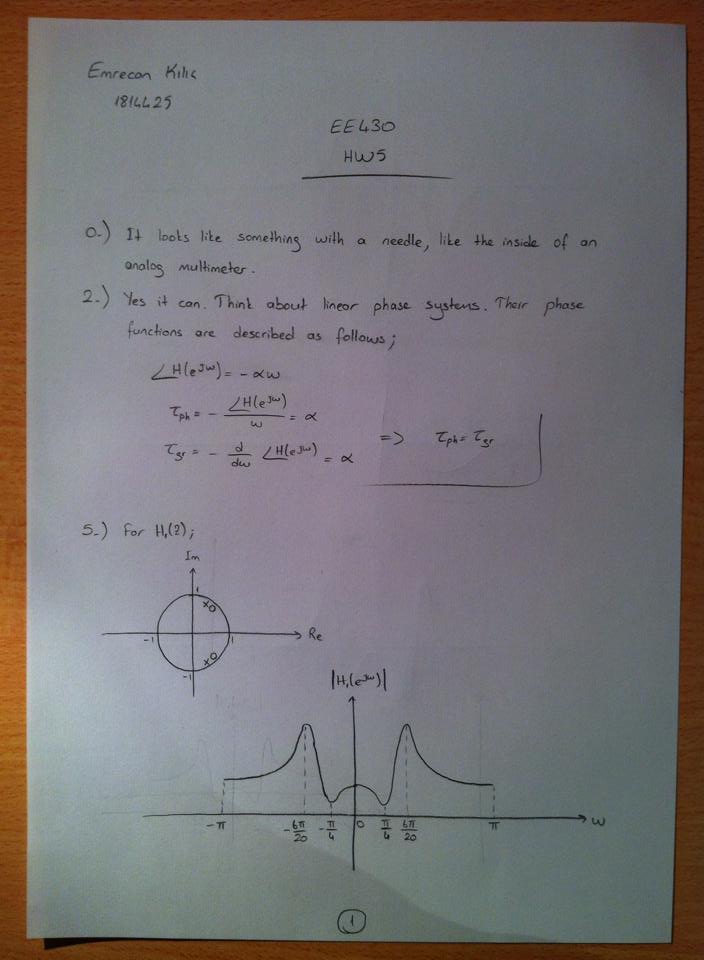 Emrecan Kılıç
1814425
EE430
HW5
0-) It looks like something with a needle, like the inside of an
analog multimeter.
2-) Yes it can. Think about linear phase systems. Their phase
functions are described as follows;
∠H(e^jw) = - αw
τph = - ∠H(e^jw) / w = α
τgr = - d/dw ∠H(e^jw) = α
=> τph = τgr
5-) For H₁(z);
Im
1
-1
1
Re
-1
|H₁(e^jw)|
-π
-6π/20
-π/4
0
π/4
6π/20
π
w
1